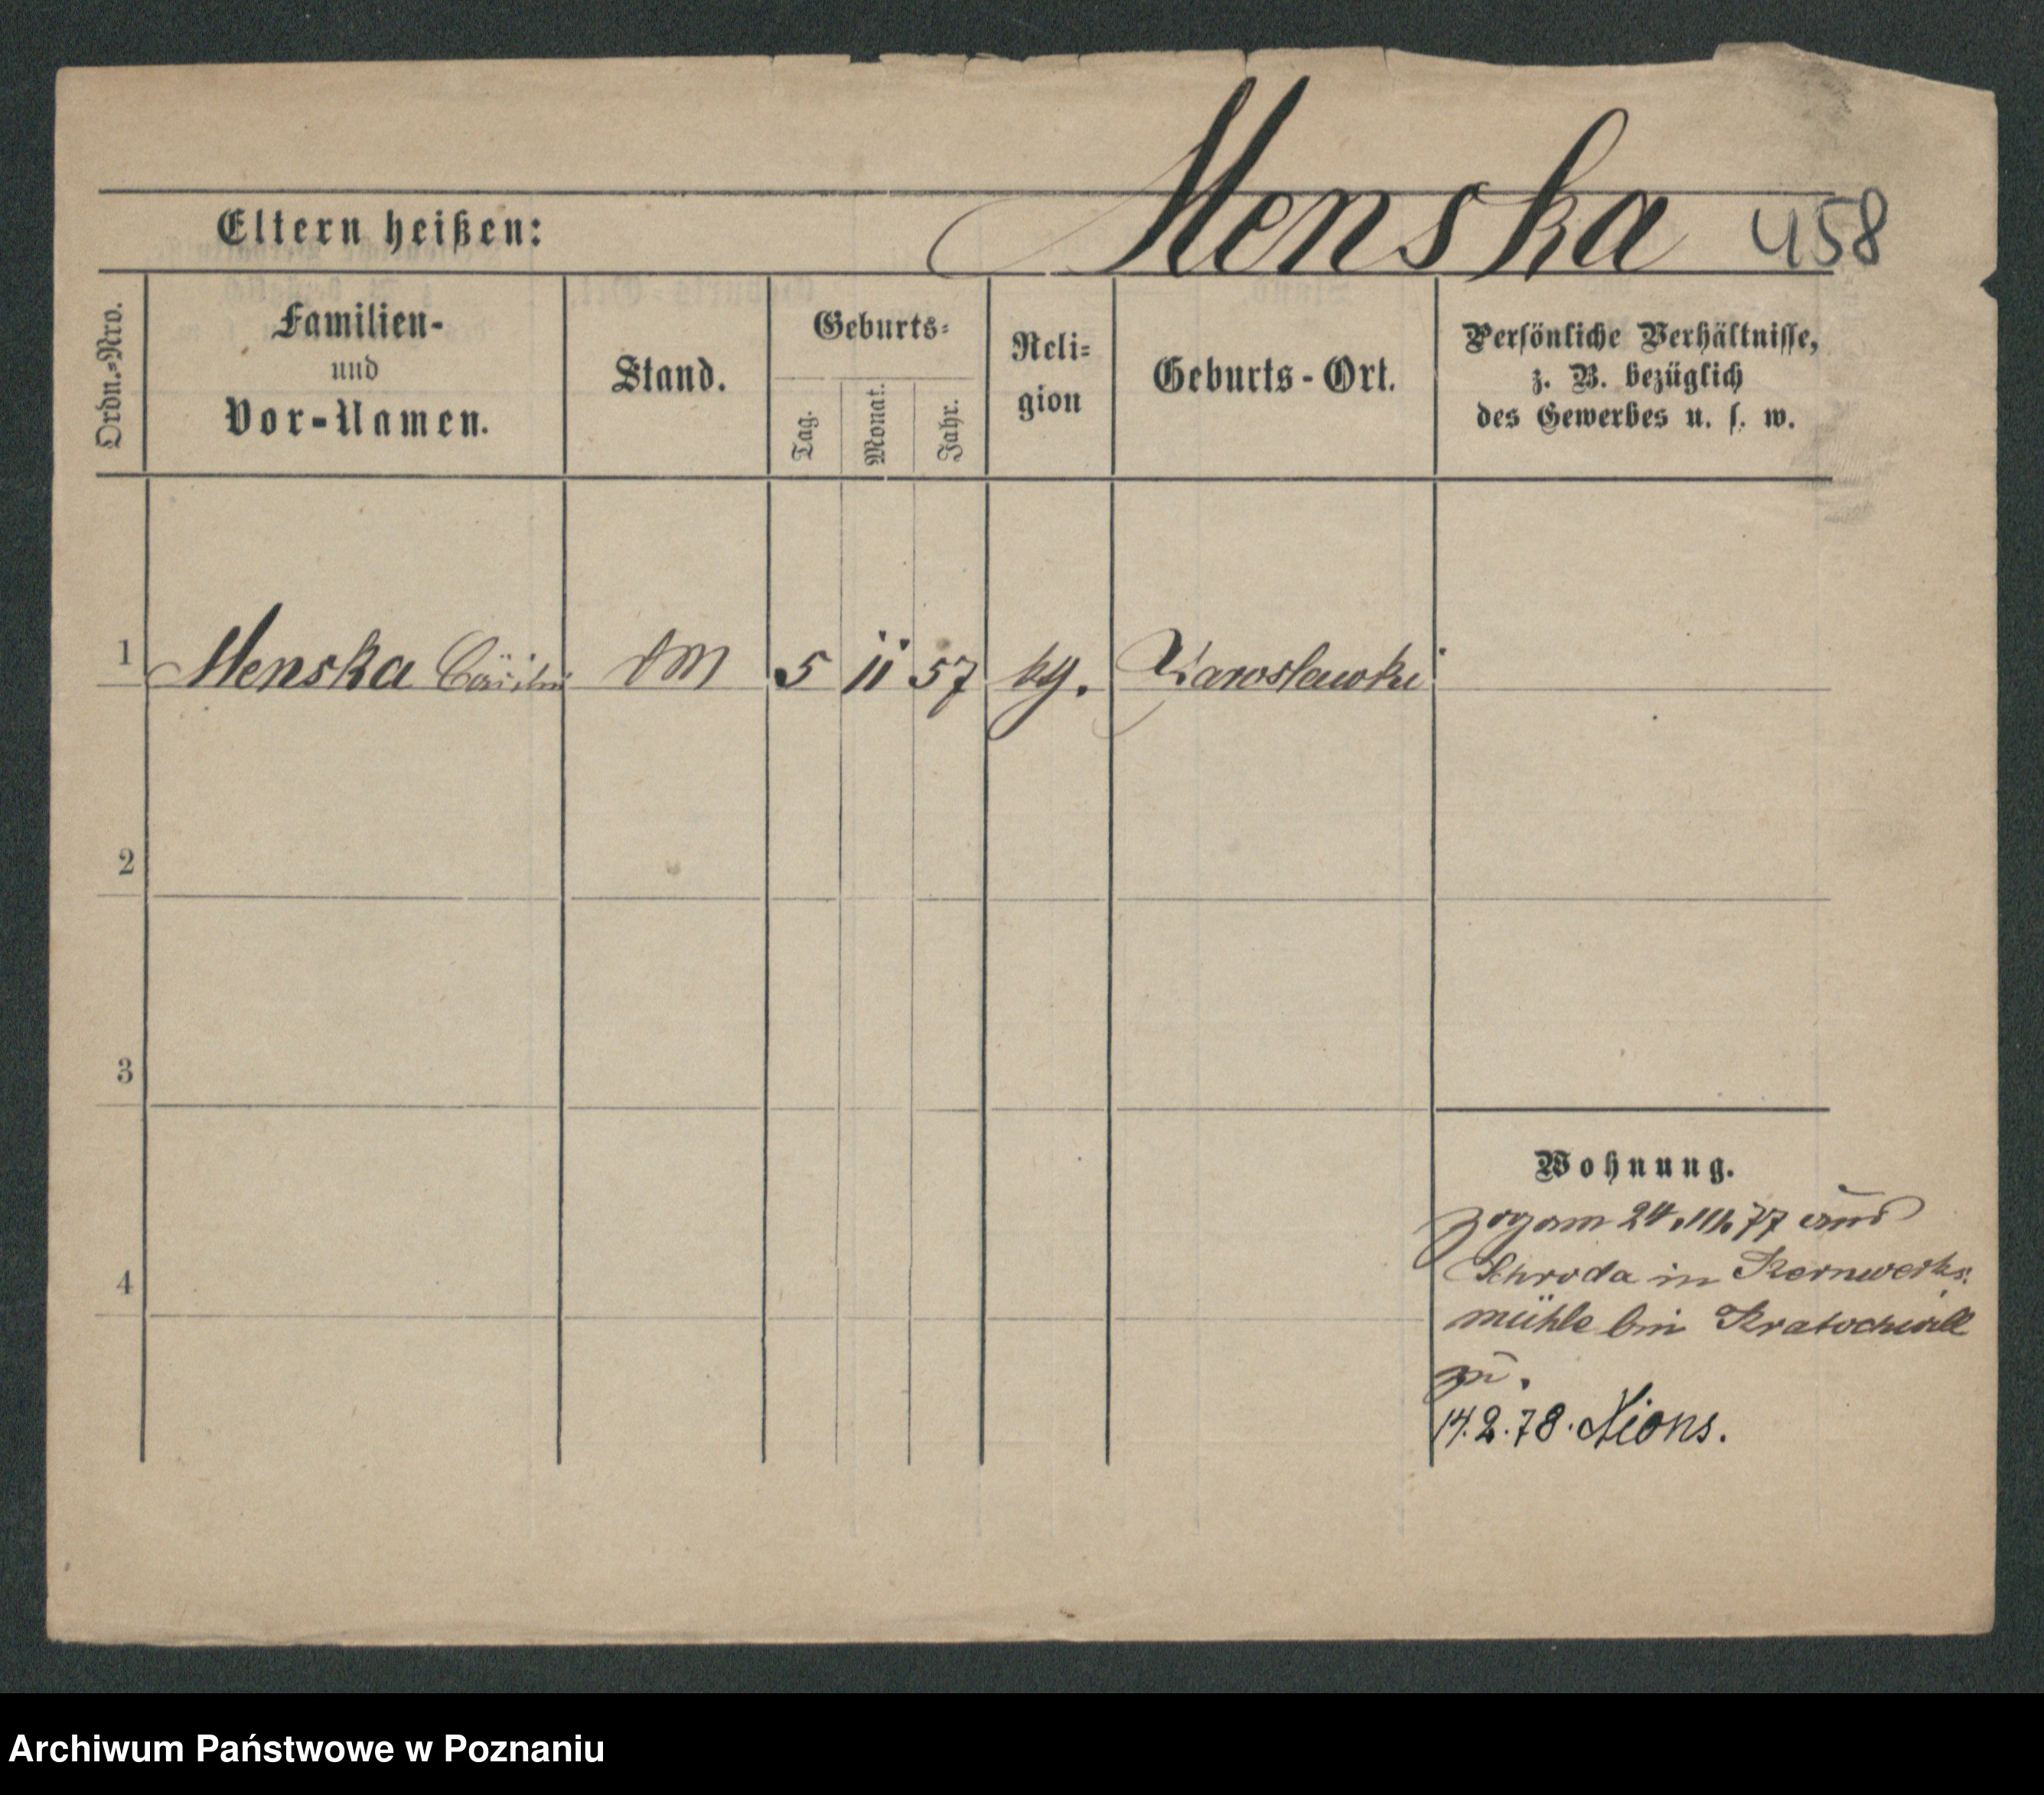 Menska 458
Eltern heißen:
Ordn.-Nro.
Familien-
und
Vor-Namen.
Stand.
Geburts-
Tag.
Monat.
Jahr.
Reli-
gion
Geburts-Ort.
Persönliche Verhältnisse,
z. B. bezüglich
des Gewerbes u. s. w.
1 Menska DM 5 11 57 Jaroslawki
2
3
4
Wohnung.
zog am 24.III.77 aus
Schroda in Kernwerks-
mühle bei Kratochwill
zu.
14.2.78. Xions.
Archiwum Państwowe w Poznaniu